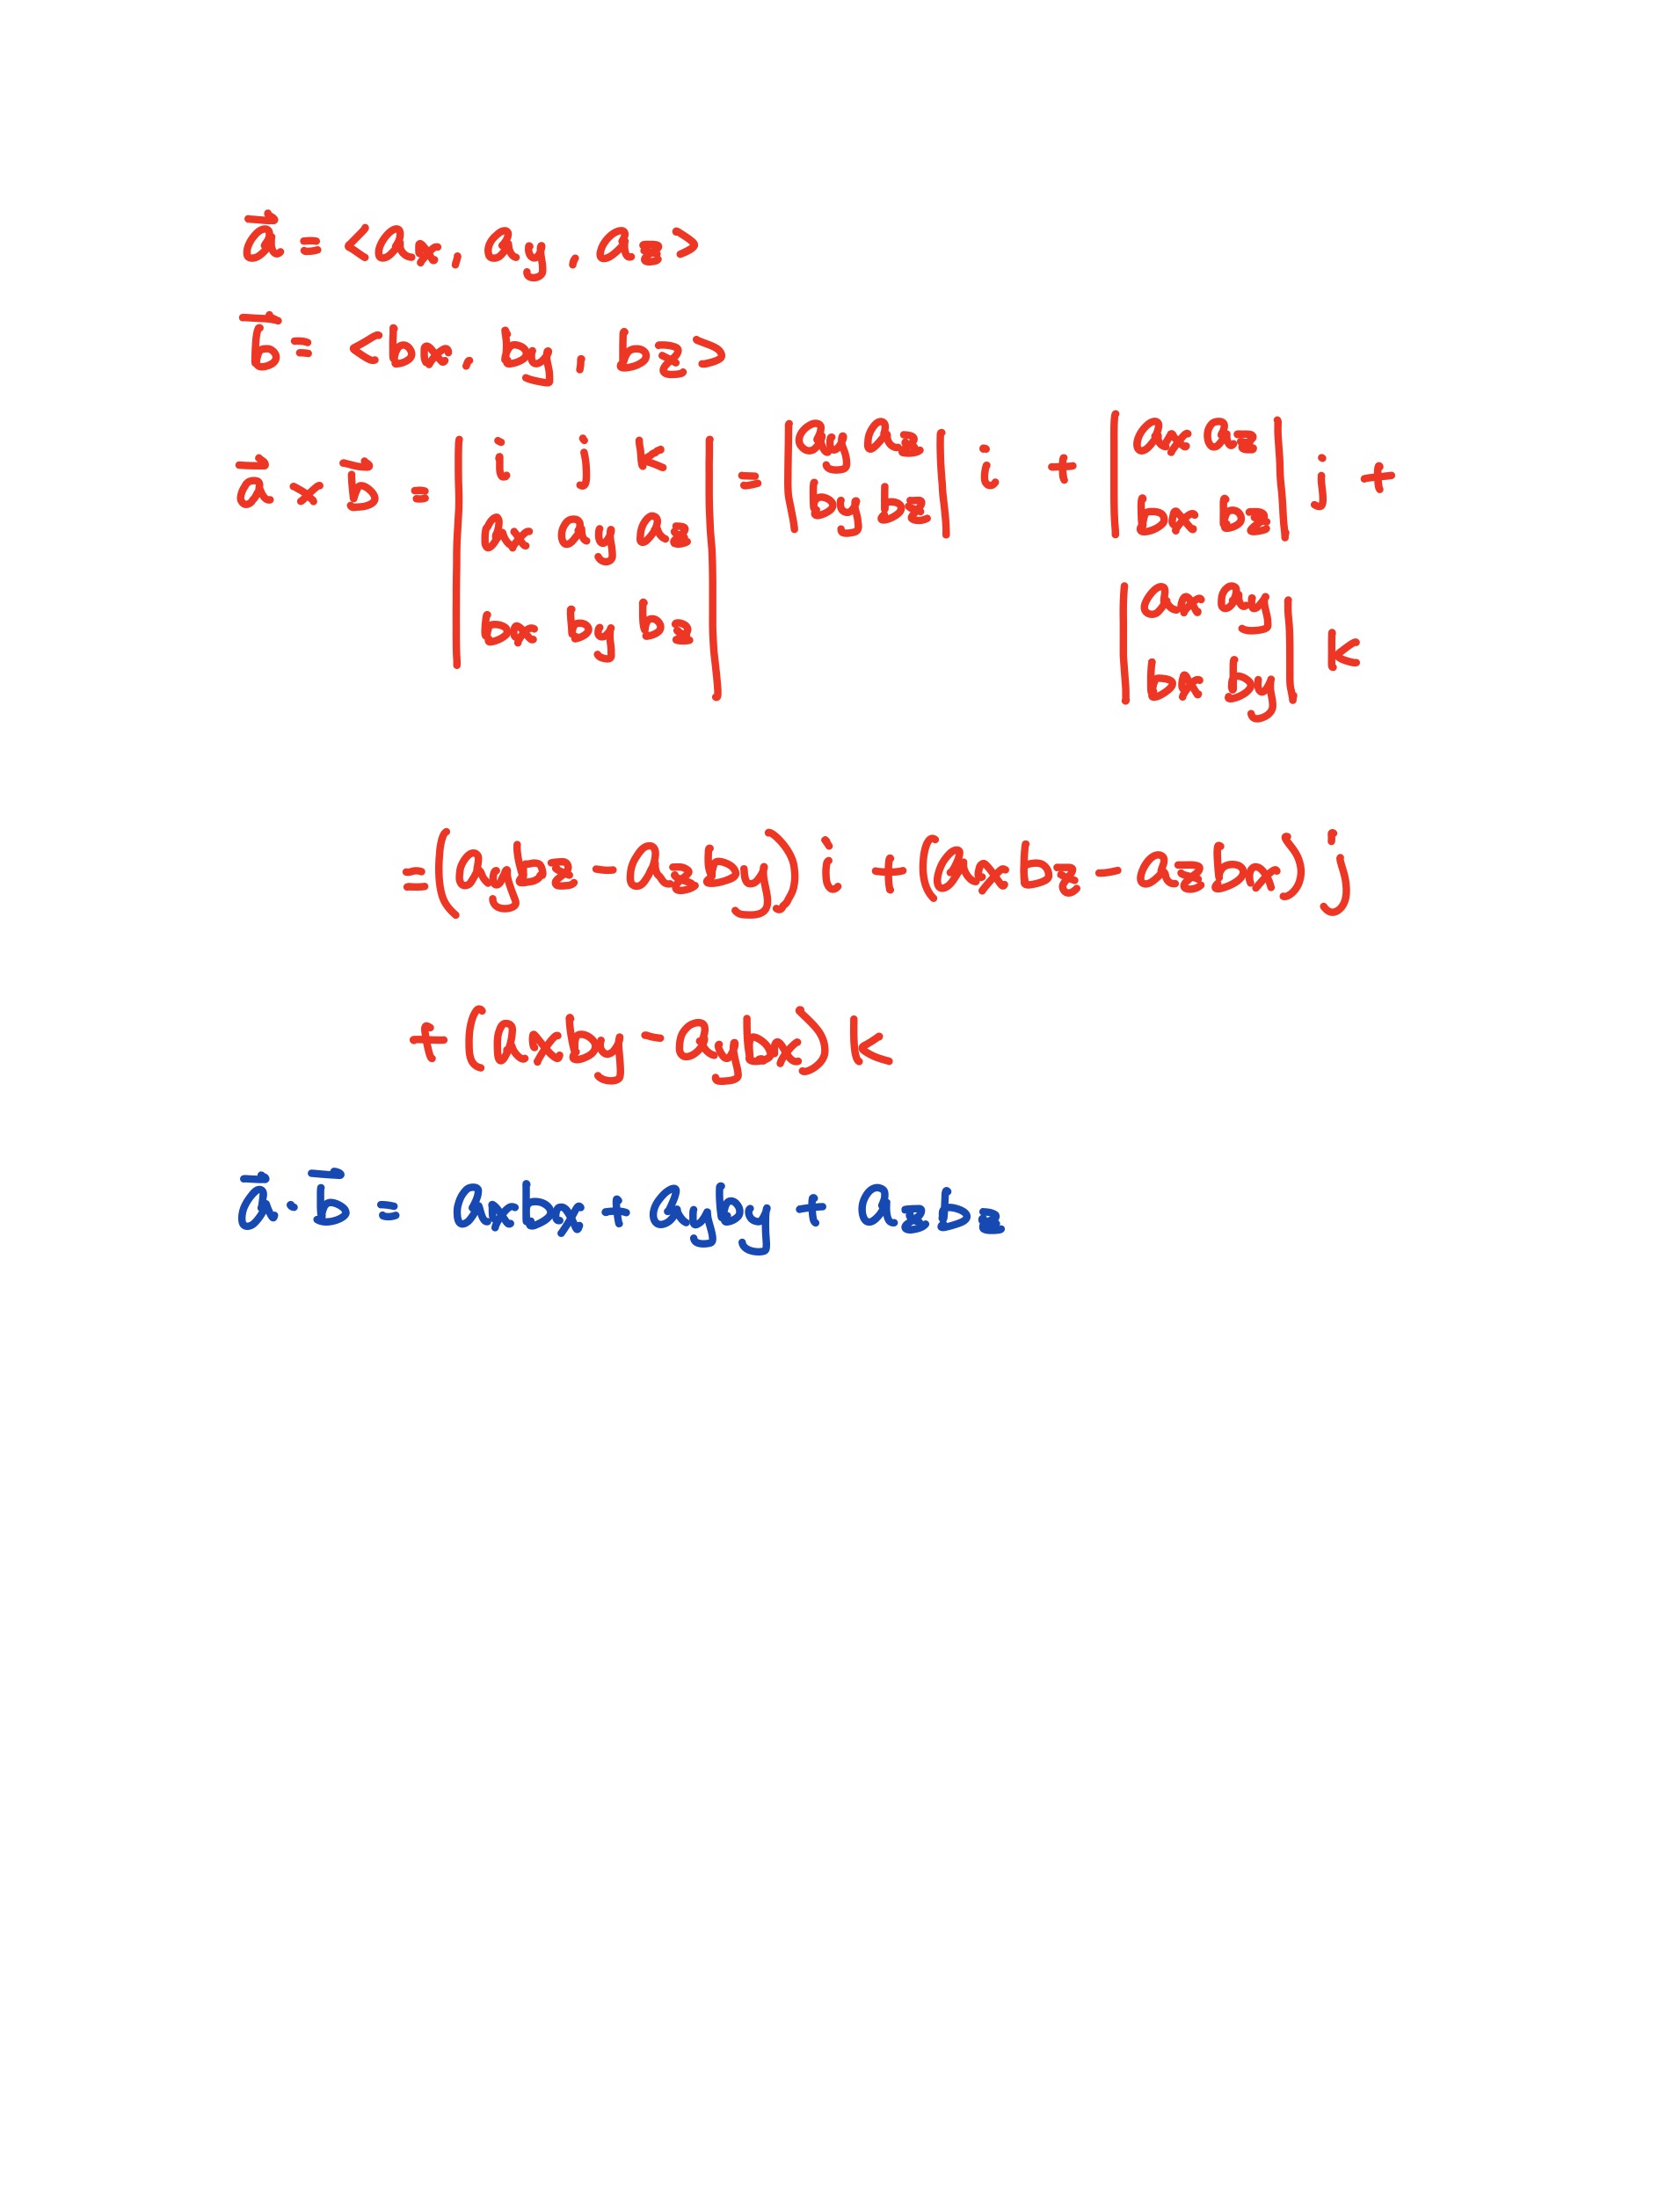 a⃗ = <ax, ay, az>
b⃗ = <bx, by, bz>
a⃗ × b⃗ = |i j k; ax ay az; bx by bz| = |ay az; by bz| i + |ax az; bx bz| j +
|ax ay; bx by| k
= (aybz - azby) i + (axbz - azbx) j
+ (axby - aybx) k
a⃗ · b⃗ = axbx + ayby + azbz